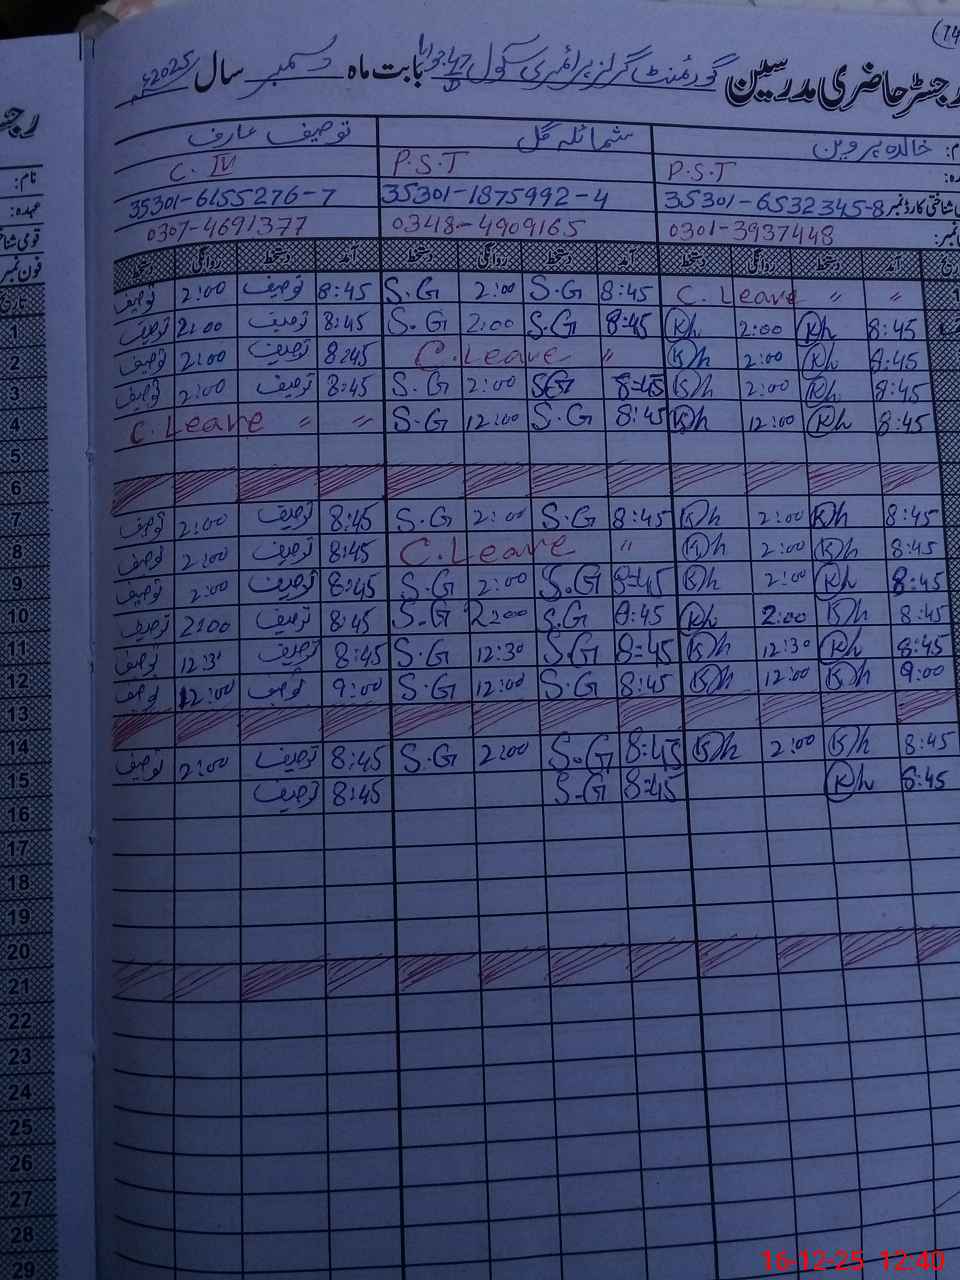 (14
رجسٹر حاضری مدرسین گورنمنٹ گرلز پرائمری سکول بابت ماہ دسمبر سال 2025ء
خالدہ پروین شمائلہ گل توصیف عارف
P.S.T P.S.T C. IV
شناختی کارڈ نمبر 35301-6532345-8 35301-1875992-4 35301-6155276-7
0301-3937448 0348-4909165 0307-4691377
آمد دستخط روانگی دستخط آمد دستخط روانگی دستخط آمد دستخط روانگی دستخط
توصیف 2:00 توصیف 8:45 S.G 2:00 S.G 8:45 C. Leave " "
توصیف 2:00 توصیف 8:45 S.G 2:00 S.G 8:45 Kh 2:00 Kh 8:45
توصیف 2:00 توصیف 8:45 C. Leave " Kh 2:00 Kh 8:45
توصیف 2:00 توصیف 8:45 S.G 2:00 SG 8:45 Kh 2:00 Kh 8:45
C. Leave " " S.G 12:00 S.G 8:45 Kh 12:00 Kh 8:45
توصیف 2:00 توصیف 8:45 S.G 2:00 S.G 8:45 Kh 2:00 Kh 8:45
توصیف 2:00 توصیف 8:45 C. Leave " Kh 2:00 Kh 8:45
توصیف 2:00 توصیف 8:45 S.G 2:00 S.G 8:45 Kh 2:00 Kh 8:45
توصیف 2:00 توصیف 8:45 S.G 2:00 S.G 8:45 Kh 2:00 Kh 8:45
توصیف 12:30 توصیف 8:45 S.G 12:30 S.G 8:45 Kh 12:30 Kh 8:45
توصیف 12:00 توصیف 9:00 S.G 12:00 S.G 8:45 Kh 12:00 Kh 9:00
توصیف 2:00 توصیف 8:45 S.G 2:00 S.G 8:45 Kh 2:00 Kh 8:45
توصیف 8:45 S.G 8:45 Kh 8:45
نام:
عہدہ:
قومی شنا
فون نمبر
تاریخ
1
2
3
4
5
6
7
8
9
10
11
12
13
14
15
16
17
18
19
20
21
22
23
24
25
26
27
28
29
16-12-25 12:40